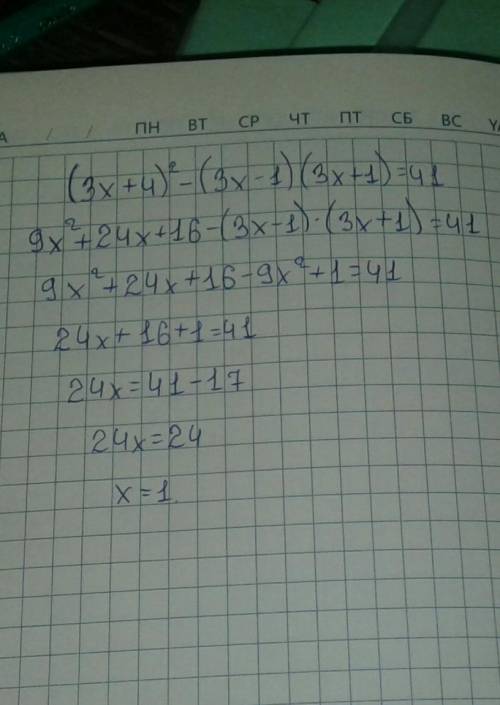 А / / ПН ВТ СР ЧТ ПТ СБ ВС
(3x+4)²-(3x-1)(3x+1)=41
9x²+24x+16-(3x-1)·(3x+1)=41
9x²+24x+16-9x²+1=41
24x+16+1=41
24x=41-17
24x=24
x=1.